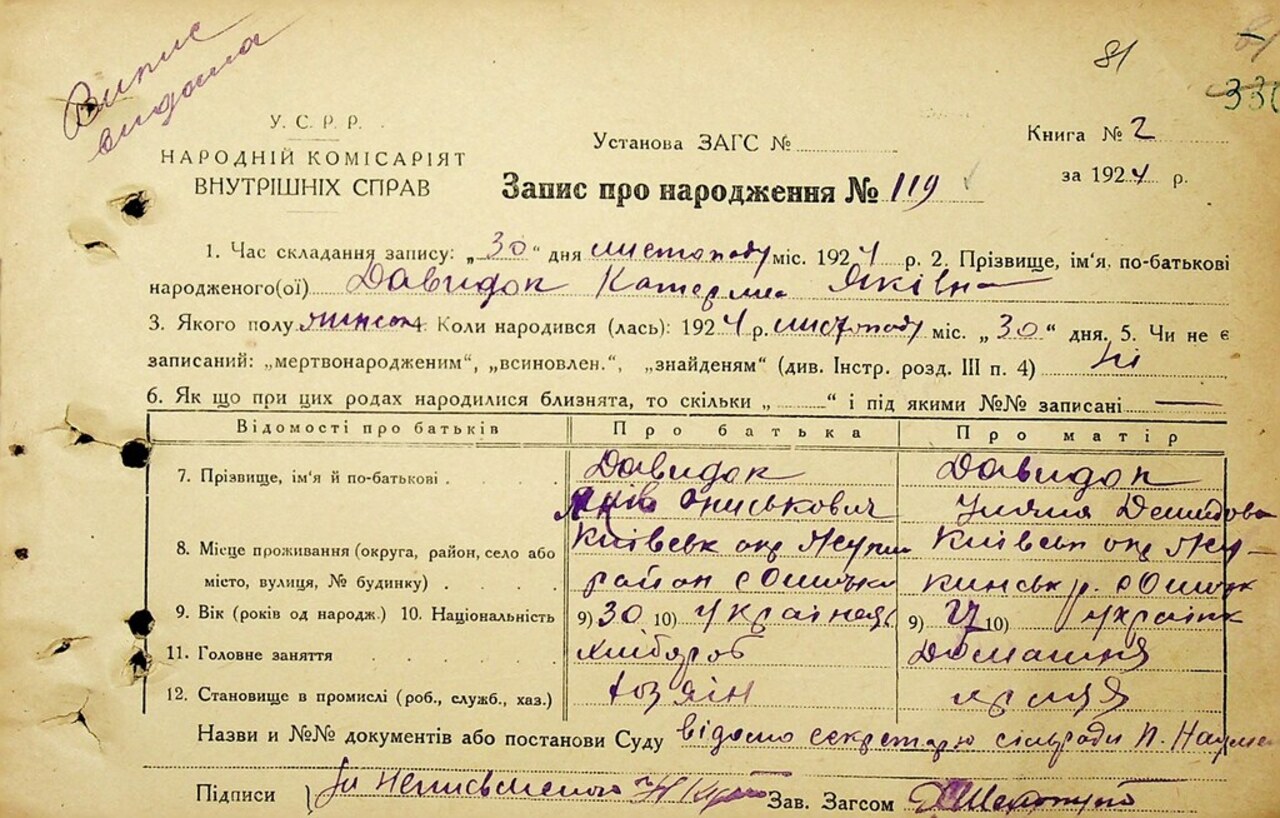 Випис
видана
81
330
У. С. Р. Р.
НАРОДНІЙ КОМІСАРІЯТ
ВНУТРІШНІХ СПРАВ
Установа ЗАГС №
Книга № 2
за 1924 р.
Запис про народження № 119
1. Час складання запису: „30“ дня листопаду міс. 1924 р. 2. Прізвище, ім'я, по-батькові
народженого(ої) Давидок Катерина Яківна
3. Якого полу 4. Коли народився (лась): 1924 р. листопаду міс. „30“ дня. 5. Чи не є
записаний: „мертвонародженим“, „всиновлен.“, „знайденям“ (див. Інстр. розд. III п. 4) ні
6. Як що при цих родах народилися близнята, то скільки „ “ і під якими №№ записані —
Відомості про батьків Про батька Про матір
7. Прізвище, ім'я й по-батькові Давидок Давидок
Яків Ониськович Уляна Демидова
8. Місце проживання (округа, район, село або Київськ окр Київськ окр
місто, вулиця, № будинку) район с р. с
9. Вік (років од народж.) 10. Національність 9) 30 10) 9) 27 10)
11. Головне заняття Хлібороб Домашня
12. Становище в промислі (роб., служб., хаз.) хозяін праця
Назви и №№ документів або постанови Суду відомо секретарю сільради П.
Підписи За неписьменого Зав. Загсом